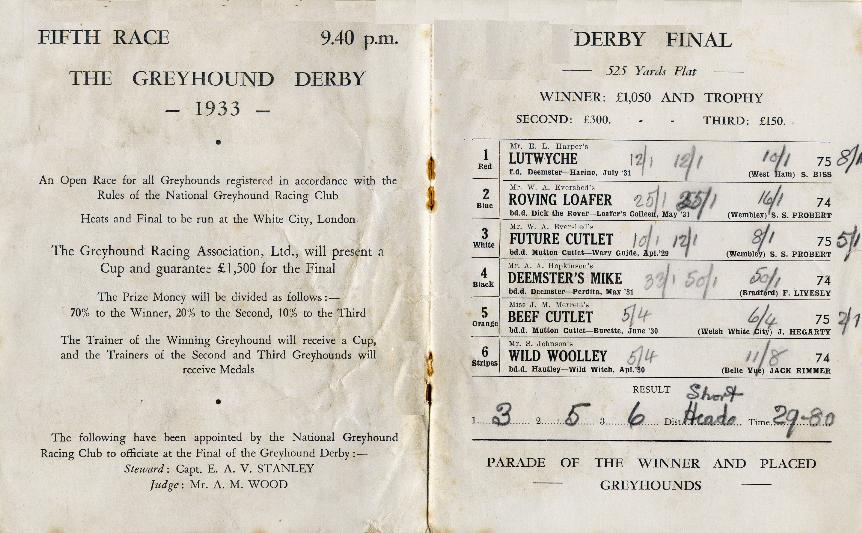 FIFTH RACE 9.40 p.m.
THE GREYHOUND DERBY
– 1933 –
An Open Race for all Greyhounds registered in accordance with the
Rules of the National Greyhound Racing Club
Heats and Final to be run at the White City, London
The Greyhound Racing Association, Ltd., will present a
Cup and guarantee £1,500 for the Final
The Prize Money will be divided as follows :—
70% to the Winner, 20% to the Second, 10% to the Third
The Trainer of the Winning Greyhound will receive a Cup,
and the Trainers of the Second and Third Greyhounds will
receive Medals
The following have been appointed by the National Greyhound
Racing Club to officiate at the Final of the Greyhound Derby :—
Steward: Capt. E. A. V. STANLEY
Judge: Mr. A. M. WOOD
DERBY FINAL
525 Yards Flat
WINNER: £1,050 AND TROPHY
SECOND: £300. - - THIRD: £150.
Mr. E. L. Harper's
1 LUTWYCHE 12/1 12/1 10/1 75 8/1
Red f.d. Deemster—Harino, July '31 (West Ham) S. BISS
Mr. W. A. Evershed's
2 ROVING LOAFER 25/1 16/1 74
Blue bd.d. Dick the Rover—Loafer's Colleen, May '31 (Wembley) S. S. PROBERT
Mr. W. A. Evershed's
3 FUTURE CUTLET 10/1 12/1 8/1 75 5/1
White bd.d. Mutton Cutlet—Wary Guide, Apl. '29 (Wembley) S. S. PROBERT
Mr. A. A. Hopkinson's
4 DEEMSTER'S MIKE 33/1 50/1 50/1 74
Black bd.d. Deemster—Perdita, May '31 (Bradford) F. LIVESLY
Miss J. M. Merrett's
5 BEEF CUTLET 5/4 6/4 75 2/1
Orange bd.d. Mutton Cutlet—Burette, June '30 (Welsh White City) J. HEGARTY
Mr. S. Johnson's
6 WILD WOOLLEY 5/4 11/8 74
Stripes bd.d. Hautley—Wild Witch, Apl. '30 (Belle Vue) JACK RIMMER
RESULT Short
1. 3 2. 5 3. 6 Dist. Heads Time 29-80
PARADE OF THE WINNER AND PLACED
GREYHOUNDS